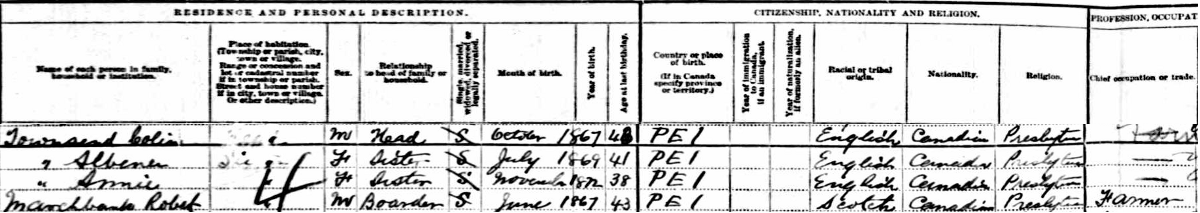 RESIDENCE AND PERSONAL DESCRIPTION. CITIZENSHIP, NATIONALITY AND RELIGION. PROFESSION, OCCUPAT
Name of each person in family, household or institution.
Place of habitation. (Township or parish, city, town or village. Range or concession and lot or cadastral number if in township or parish. Street and house number if in city, town or village. Or other description.)
Sex.
Relationship to head of family or household.
Single, married, widowed, divorced or legally separated.
Month of birth.
Year of birth.
Age at last birthday.
Country or place of birth. (If in Canada specify province or territory.)
Year of immigration to Canada, if an immigrant.
Year of naturalization, if formerly an alien.
Racial or tribal origin.
Nationality.
Religion.
Chief occupation or trade.
Townsend Colin M Head S October 1867 43 PEI English Canadian Presbyten
" Albener F Sister S July 1869 41 PEI English Canada Presbyten —
" Annie 4 F Sister S November 1872 38 PEI English Canadian Presbyten —
Marchbank Robert M Boarder S June 1867 43 PEI Scotch Canadian Presbyten Farmer